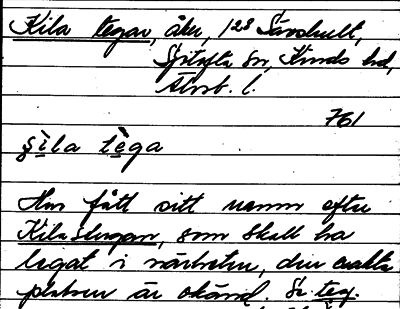 Kila tegar, åker, 1²⁸ Sävshult,
Sjötofta sn, Kinds hd,
Älvsb. l.
761
şìla tèga
Har fått sitt namn efter
Kilastugan, som skall ha
legat i närheten, den exakta
platsen är okänd. Se teg.